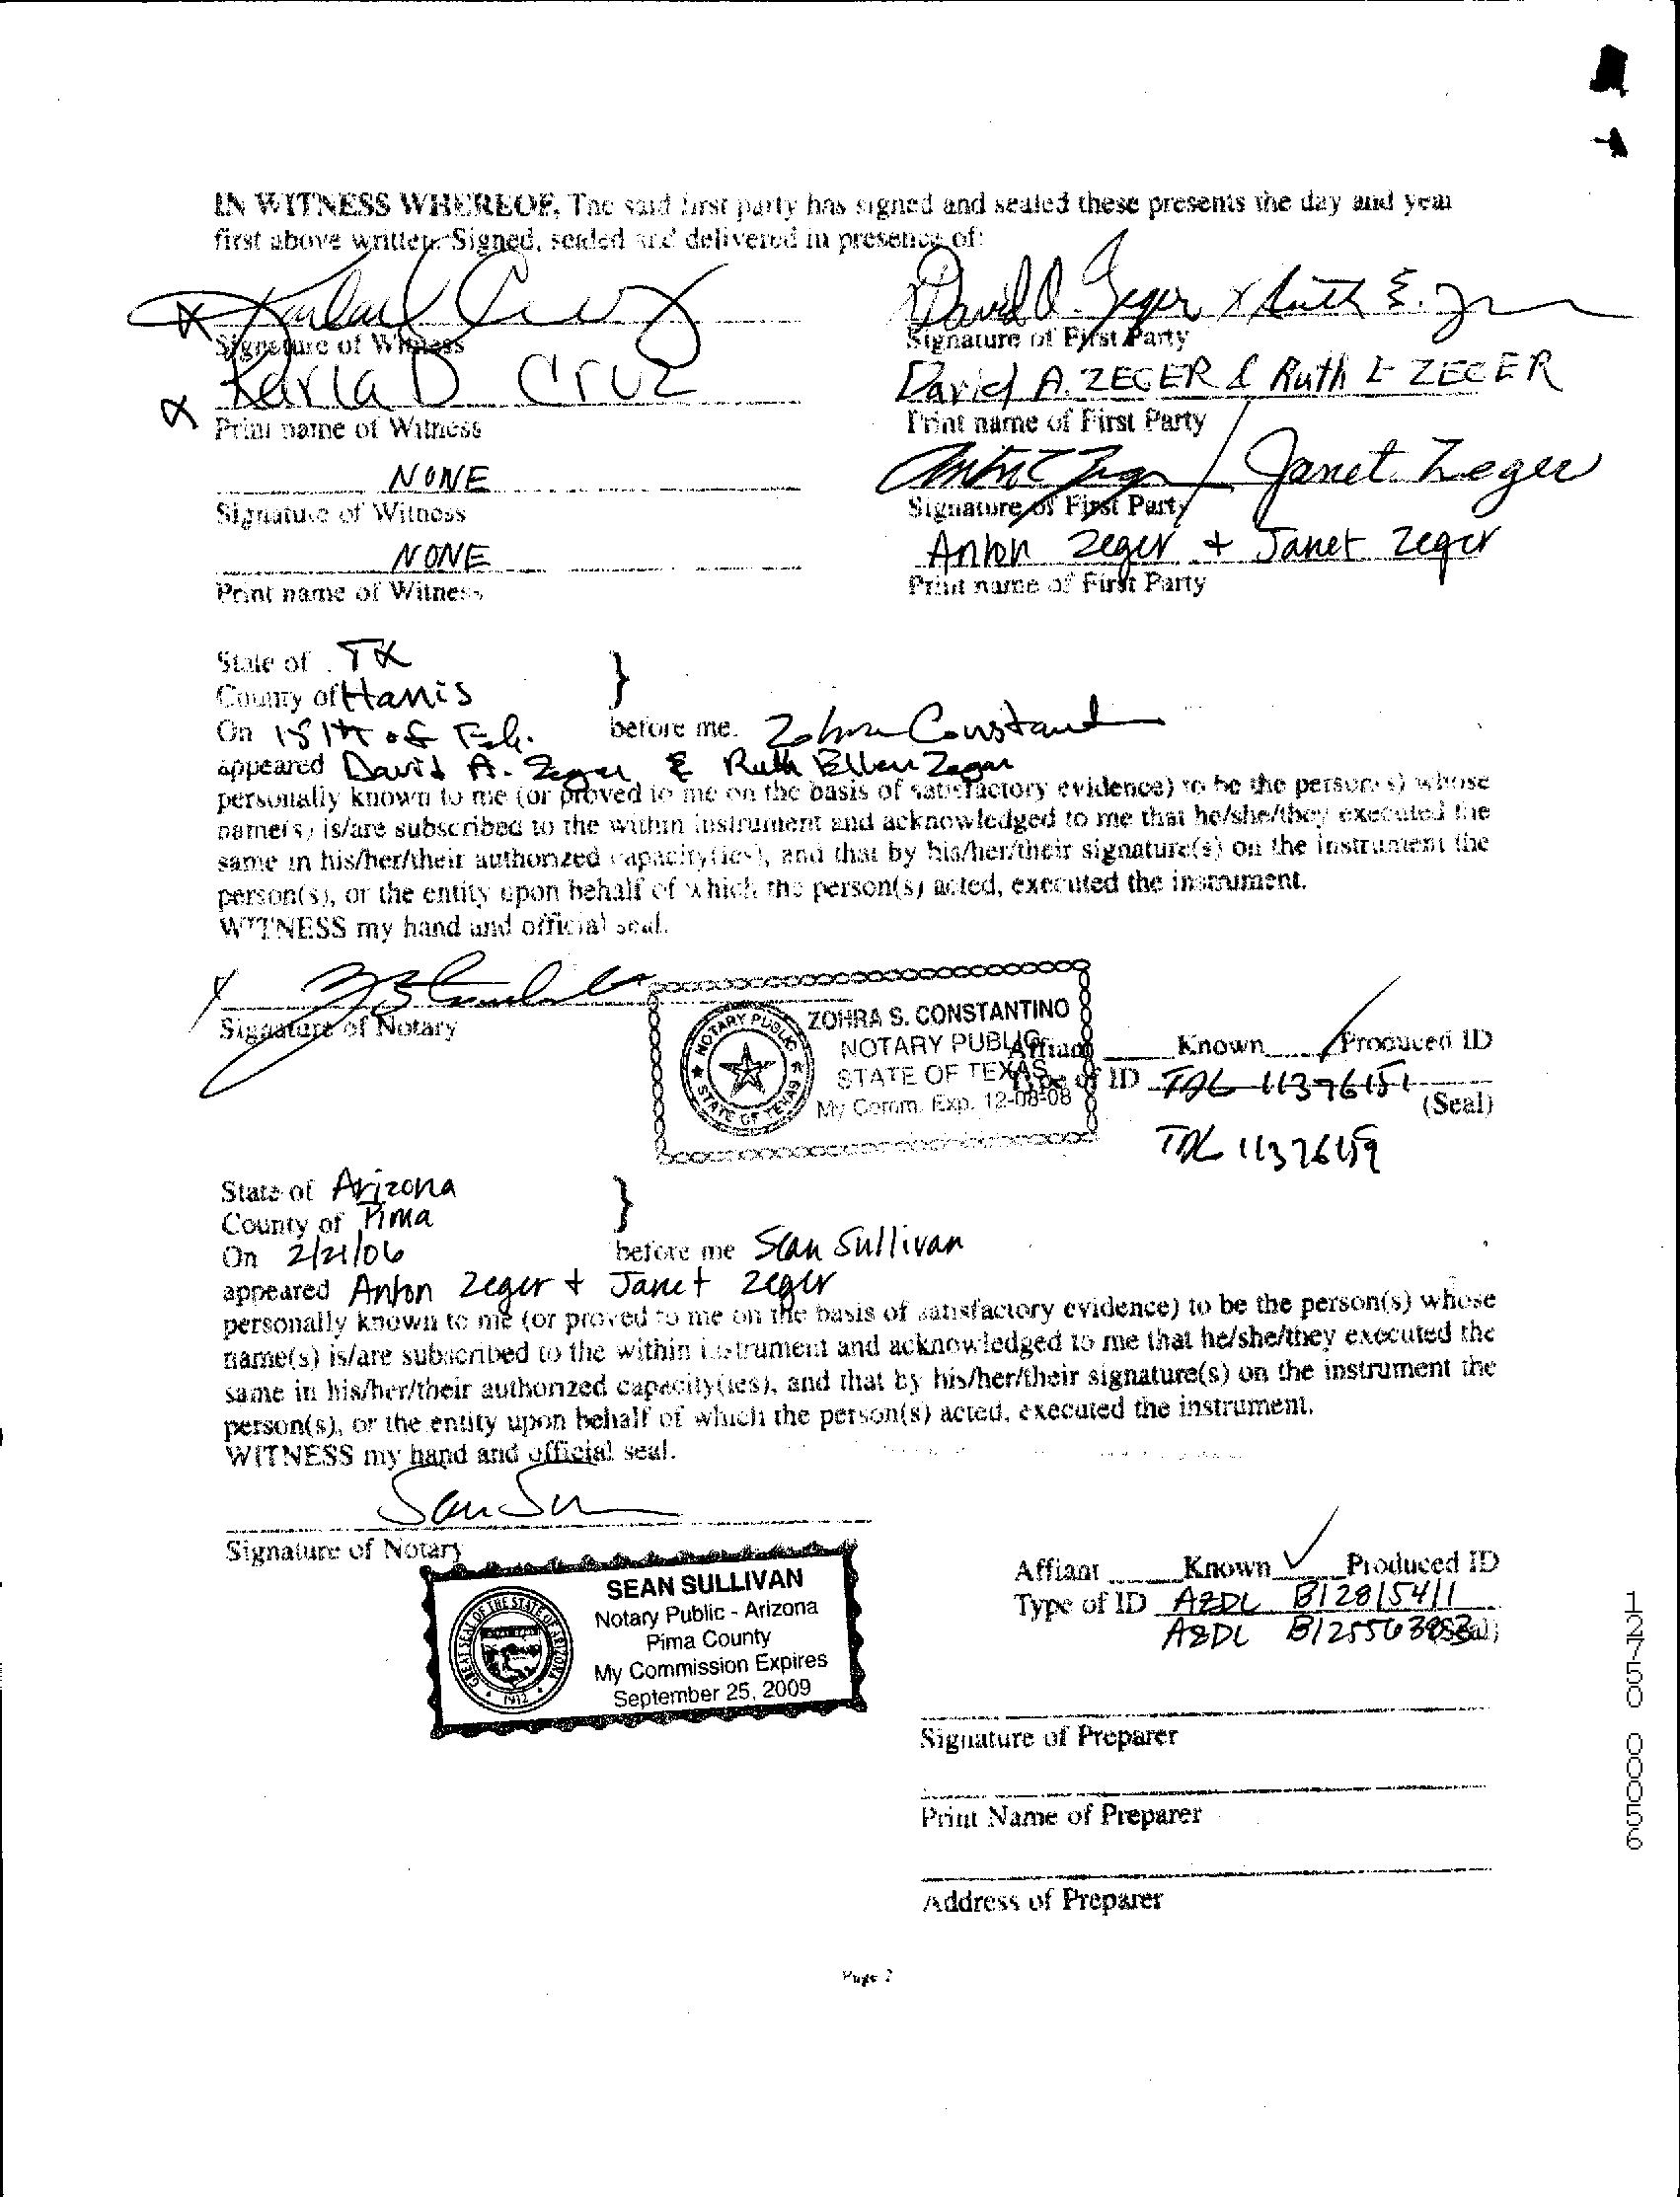 IN WITNESS WHEREOF, The said first party has signed and sealed these presents the day and year
first above written. Signed, sealed and delivered in presence of:
Signature of Witness
Karla D Cruz
Print name of Witness
NONE
Signature of Witness
NONE
Print name of Witness
David A. Zeger x Ruth E.
Signature of First Party
David A. ZEGER & Ruth E ZEGER
Print name of First Party
/ Janet Zeger
Signature of First Party
Anton Zeger + Janet Zeger
Print name of First Party
State of TX
County of Harris
On 18th of Feb. before me. Zohra Constant
appeared David A. Zeger & Ruth Ellen Zeger
personally known to me (or proved to me on the basis of satisfactory evidence) to be the person(s) whose
name(s) is/are subscribed to the within instrument and acknowledged to me that he/she/they executed the
same in his/her/their authorized capacity(ies), and that by his/her/their signature(s) on the instrument the
person(s), or the entity upon behalf of which the person(s) acted, executed the instrument.
WITNESS my hand and official seal.
Signature of Notary
NOTARY PUBLIC STATE OF TEXAS
ZOHRA S. CONSTANTINO
NOTARY PUBLIC
STATE OF TEXAS
My Comm. Exp. 12-08-08
Affiant Known Produced ID
Type of ID TDL
(Seal)
TDL
State of Arizona
County of Pima
On 2/21/06 before me Sean Sullivan
appeared Anton Zeger + Janet Zeger
personally known to me (or proved to me on the basis of satisfactory evidence) to be the person(s) whose
name(s) is/are subscribed to the within instrument and acknowledged to me that he/she/they executed the
same in his/her/their authorized capacity(ies), and that by his/her/their signature(s) on the instrument the
person(s), or the entity upon behalf of which the person(s) acted, executed the instrument.
WITNESS my hand and official seal.
Signature of Notary
GREAT SEAL OF THE STATE OF ARIZONA
1912
SEAN SULLIVAN
Notary Public - Arizona
Pima County
My Commission Expires
September 25, 2009
Affiant Known ✓ Produced ID
Type of ID AZDL B12815411
AZDL (Seal)
Signature of Preparer
Print Name of Preparer
Address of Preparer
Page 2
12750 00056